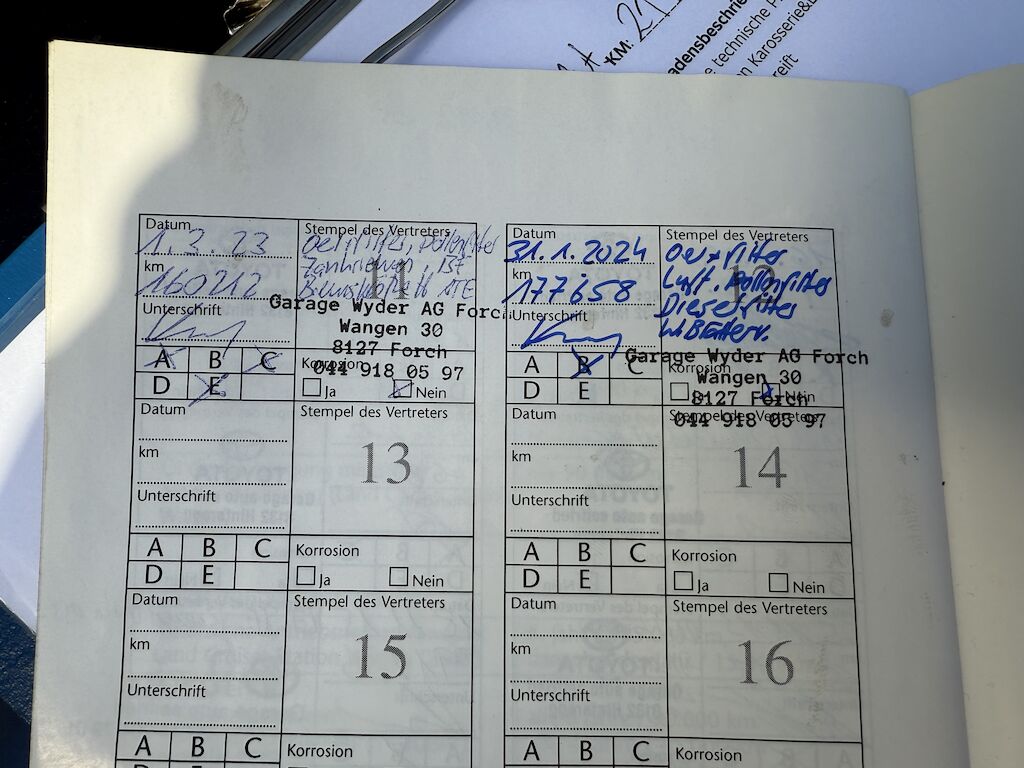 KM: 21
adensbeschrie
e technische P
n Karosserie&L
reift
Datum
1.3.23
km
160212
Unterschrift
Stempel des Vertreters
Oelfilter, Pollenfilter
11
Garage Wyder AG Forch
Wangen 30
8127 Forch
044 918 05 97
A B C
D E
Korrosion
Ja Nein
Datum
31.1.2024
km
177658
Unterschrift
Stempel des Vertreters
Oel + Filter
Luft, Pollenfilter
Dieselfilter
12
Garage Wyder AG Forch
Wangen 30
8127 Forch
044 918 05 97
A B C
D E
Korrosion
Nein
Datum
km
Unterschrift
Stempel des Vertreters
13
A B C
D E
Korrosion
Ja Nein
Datum
km
Unterschrift
Stempel des Vertreters
14
A B C
D E
Korrosion
Ja Nein
Datum
km
Unterschrift
Stempel des Vertreters
15
A B C
Korrosion
Datum
km
Unterschrift
Stempel des Vertreters
16
A B C
Korrosion